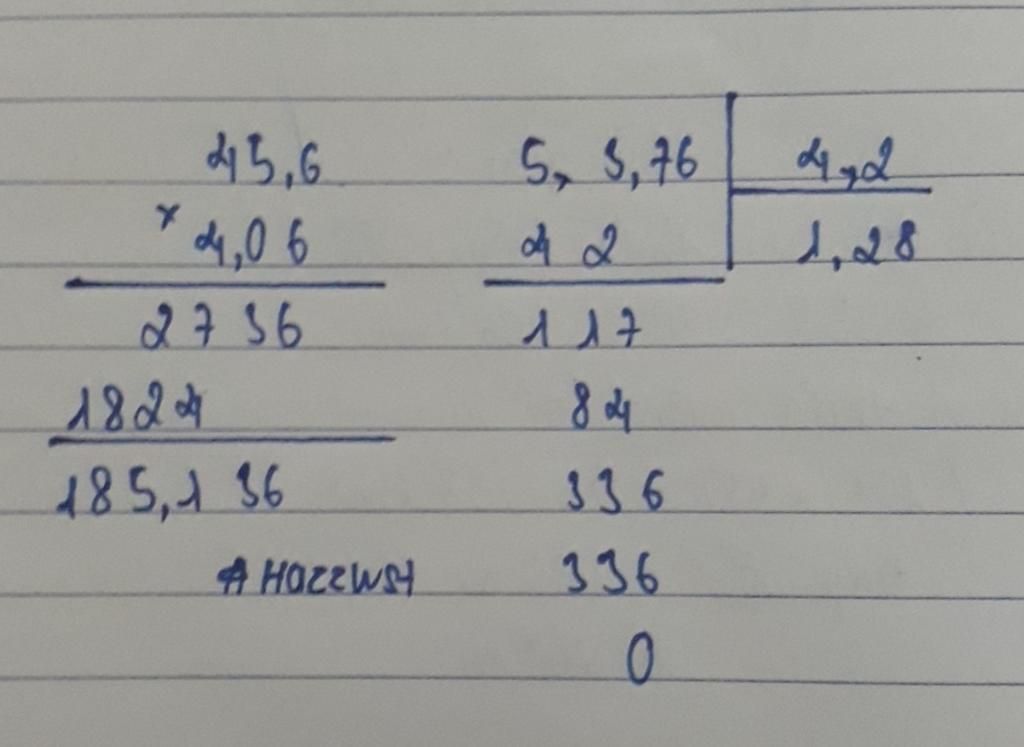 45,6
× 4,06
2736
1824
185,136
5,3,76 4,2
42 1,28
117
84
336
336
0